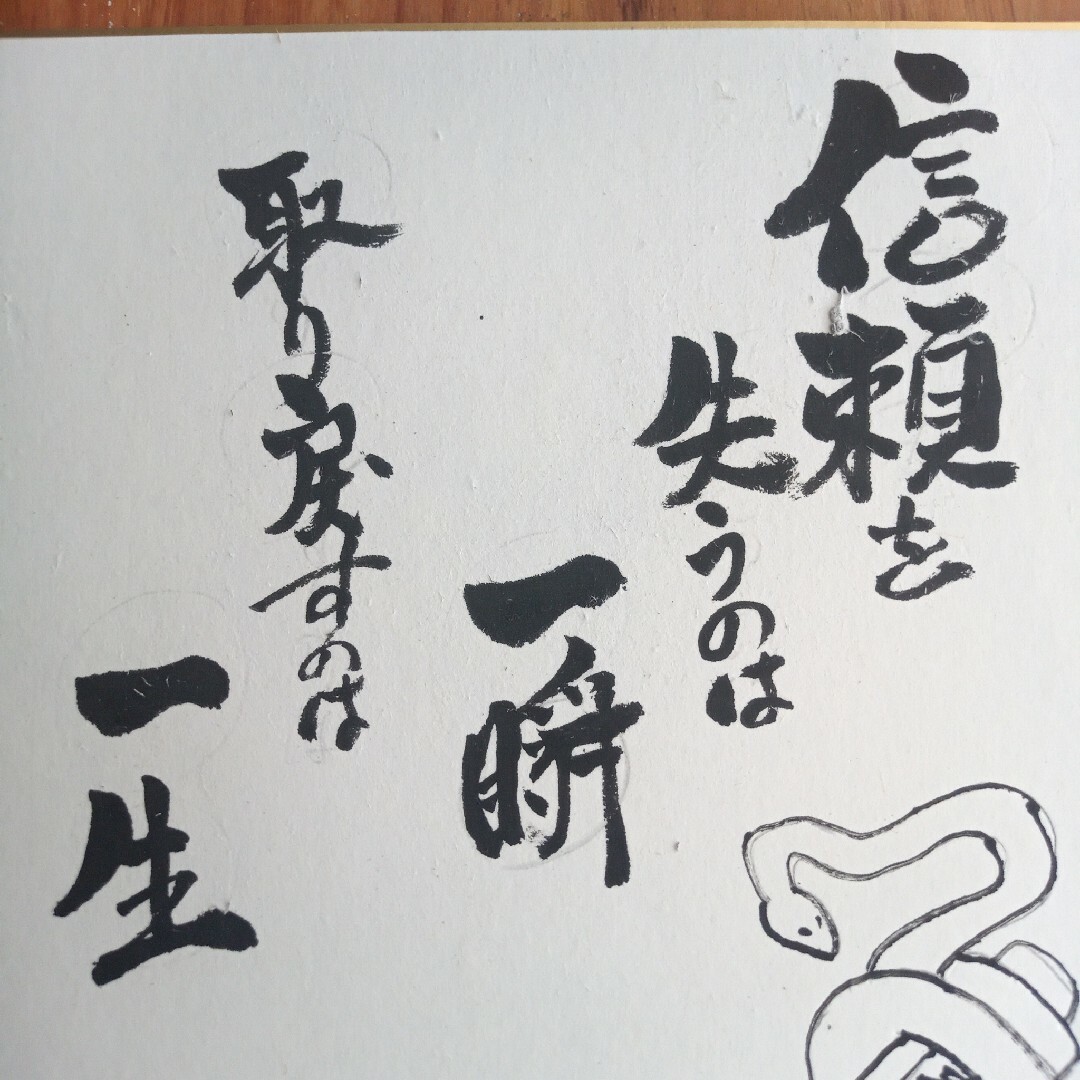 信頼を
失うのは
一瞬
取り戻すのは
一生